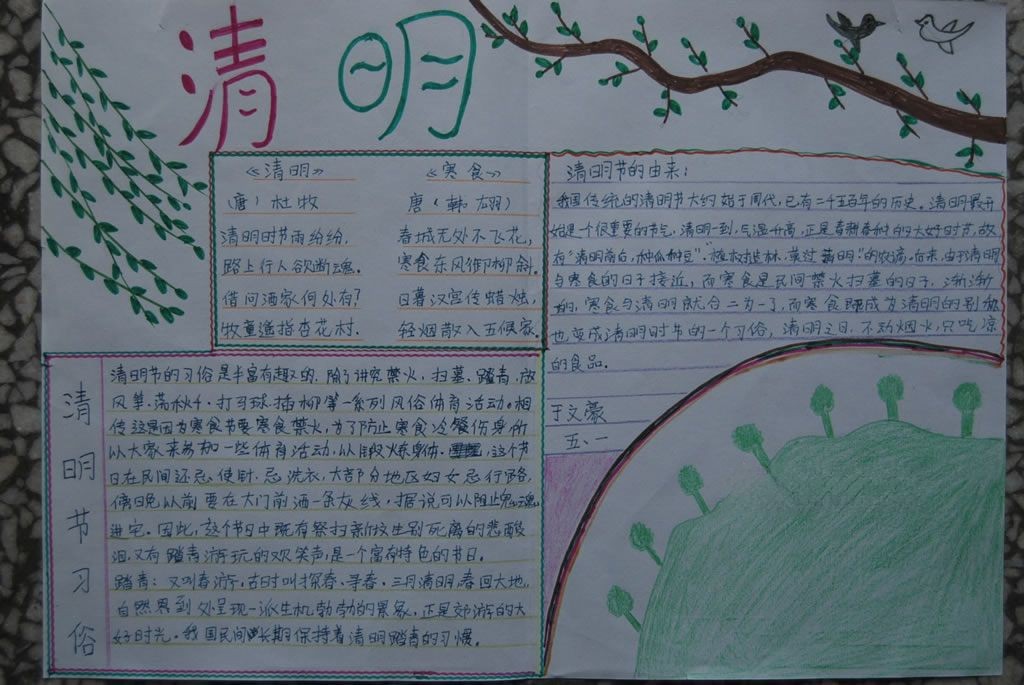 清明
《清明》
(唐)杜牧
清明时节雨纷纷,
路上行人欲断魂。
借问酒家何处有?
牧童遥指杏花村.
《寒食》
唐(韩翃)
春城无处不飞花,
寒食东风御柳斜.
日暮汉宫传蜡烛,
轻烟散入五候家.
清明节的由来:
我国传统的清明节大约始于周代,已有二千五百年的历史。清明最开
始是个很重要的节气,清明一到,气温升高,正是春耕春种的大好时节,故
有“清明前后,种瓜种豆”.“植树造林,莫过清明”的农谚.后来,由于清明
与寒食的日子接近,而寒食是民间禁火扫墓的日子,渐渐
的,寒食与清明就合二为一了,而寒食既成为清明的别称
也变成清明时节的一个习俗,清明之日,不动烟火,只吃凉
的食品。
于文豪
五、一
清明节习俗
清明节的习俗是丰富有趣的,除了讲究禁火,扫墓、踏青,放
风筝、荡秋千,打马球插柳等一系列风俗体育活动。相
传这是因为寒食节要寒食禁火,为了防止寒食冷餐伤身,所
以大家来参加一些体育活动,以锻炼身体. 这个节
日在民间还忌使针,忌洗衣,大部分地区妇女忌行路.
傍晚以前要在大门前洒一条灰线,据说可以阻止鬼魂
进宅。因此,这个节日中既有祭扫新坟生别死离的悲酸
泪,又有踏青游玩的欢笑声,是一个富有特色的节日。
踏青:又叫春游,古时叫探春、寻春,三月清明,春回大地,
自然界到处呈现一派生机勃勃的景象,正是郊游的大
好时光。我国民间长期保持着清明踏青的习惯。